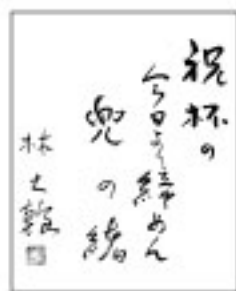 祝杯の
今日より締めん
兜の緒